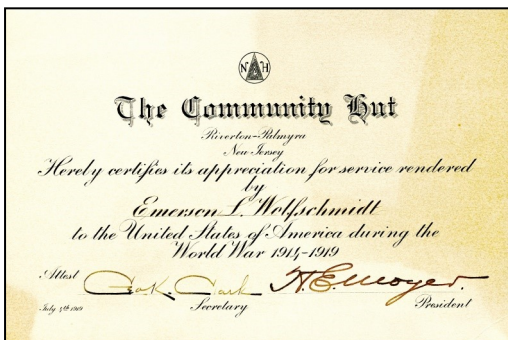 N H
The Community Hut
Riverton-Palmyra
New Jersey
Hereby certifies its appreciation for service rendered
by
Emerson L. Wolfschmidt
to the United States of America during the
World War 1914-1919
Attest
Geo K. Clark H. E. Moyer.
July 4th 1919 Secretary President